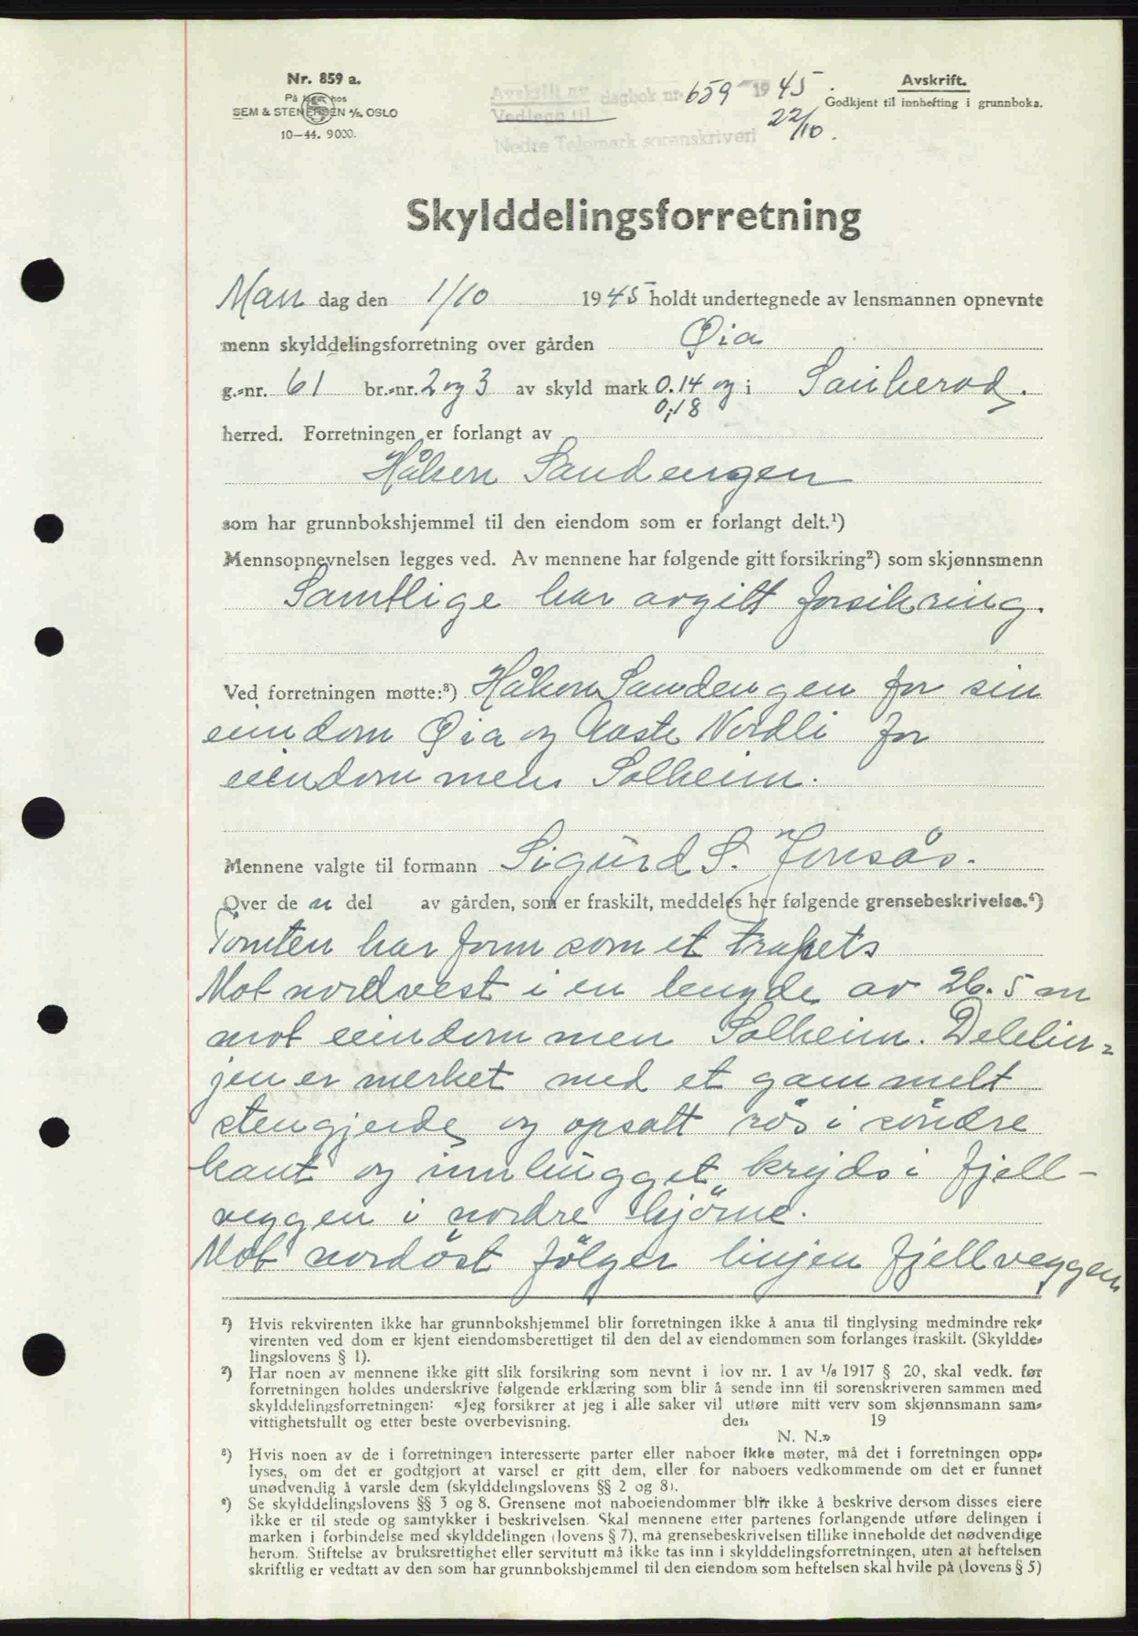 Nr. 859 a.
På lager hos
SEM & STENERSEN A/S, OSLO
10—44. 9000.
Avskrift av dagbok nr. 659 1945.
Vedlegg til 22/10.
Nedre Telemark sorenskriveri
Avskrift.
Godkjent til innhefting i grunnboka.
Skylddelingsforretning
Man dag den 1/10 1945 holdt undertegnede av lensmannen opnevnte
menn skylddelingsforretning over gården Øia
g.-nr. 61 br.-nr. 2 og 3 av skyld mark 0.14 og i Sauherad.
0,18
herred. Forretningen er forlangt av
Håkon Sandengen
som har grunnbokshjemmel til den eiendom som er forlangt delt.¹)
Mennsopnevnelsen legges ved. Av mennene har følgende gitt forsikring²) som skjønnsmenn
Samtlige har avgitt forsikring.
Ved forretningen møtte:³) Håkon Sandengen for sin
eiendom Øia og Aaste Nordli for
eiendommen Solheim.
Mennene valgte til formann Sigurd S. Jonsås.
Over de n del av gården, som er fraskilt, meddeles her følgende grensebeskrivelse.⁴)
Tomten har form som et trapets
Mot nordvest i en lengde av 26.5 m
mot eiendommen Solheim. Delelin-
jen er merket med et gammelt
stengjerde og opsatt rös i söndre
kant og innhugget kryds i fjell-
veggen i nordre hjörne.
Mot nordöst fölger linjen fjellveggen
¹) Hvis rekvirenten ikke har grunnbokshjemmel blir forretningen ikke å anta til tinglysing medmindre rek-
virenten ved dom er kjent eiendomsberettiget til den del av eiendommen som forlanges fraskilt. (Skyldde-
lingslovens § 1).
²) Har noen av mennene ikke gitt slik forsikring som nevnt i lov nr. 1 av 1/6 1917 § 20, skal vedk. før
forretningen holdes underskrive følgende erklæring som blir å sende inn til sorenskriveren sammen med
skylddelingsforretningen: «Jeg forsikrer at jeg i alle saker vil utføre mitt verv som skjønnsmann sam-
vittighetsfullt og etter beste overbevisning. den 19
N. N.»
³) Hvis noen av de i forretningen interesserte parter eller naboer ikke møter, må det i forretningen opp-
lyses, om det er godtgjort at varsel er gitt dem, eller for naboers vedkommende om det er funnet
unødvendig å varsle dem (skylddelingslovens §§ 2 og 8).
⁴) Se skylddelingslovens §§ 3 og 8. Grensene mot naboeiendommer blir ikke å beskrive dersom disses eiere
ikke er til stede og samtykker i beskrivelsen. Skal mennene etter partenes forlangende utføre delingen i
marken i forbindelse med skylddelingen (lovens § 7), må grensebeskrivelsen tillike inneholde det nødvendige
herom. Stiftelse av bruksrettighet eller servitutt må ikke tas inn i skylddelingsforretningen, uten at heftelsen
skriftlig er vedtatt av den som har grunnbokshjemmel til den eiendom som heftelsen skal hvile på (lovens § 5)